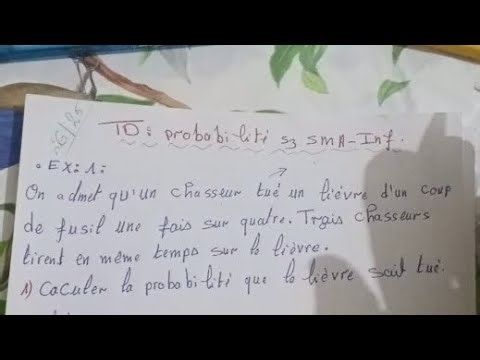 TD: probabilité S3 SMA-Inf.
• EX: 1:
On admet qu'un chasseur tué un lièvre d'un coup
de fusil une fais sur quatre. Trais chasseurs
tirent en même temps sur le lièvre.
1) Caculer la probabilité que le lièvre sait tué.